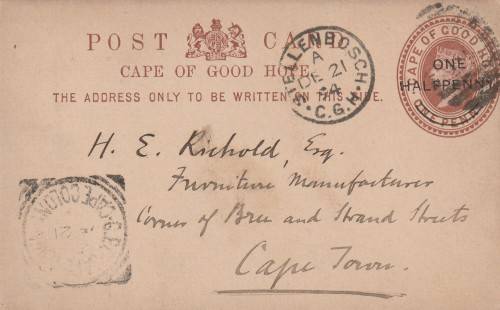 POST CARD
CAPE OF GOOD HOPE.
THE ADDRESS ONLY TO BE WRITTEN ON THIS SIDE.
STELLENBOSCH
A
DE 21
94
C.G.H.
CAPE OF GOOD HOPE
ONE
HALFPENNY
ONE PENNY
H. E. Richold, Esq.
Furniture Manufacturer
Corner of Bree and Strand Streets
Cape Town.
CAPE COLONY
21